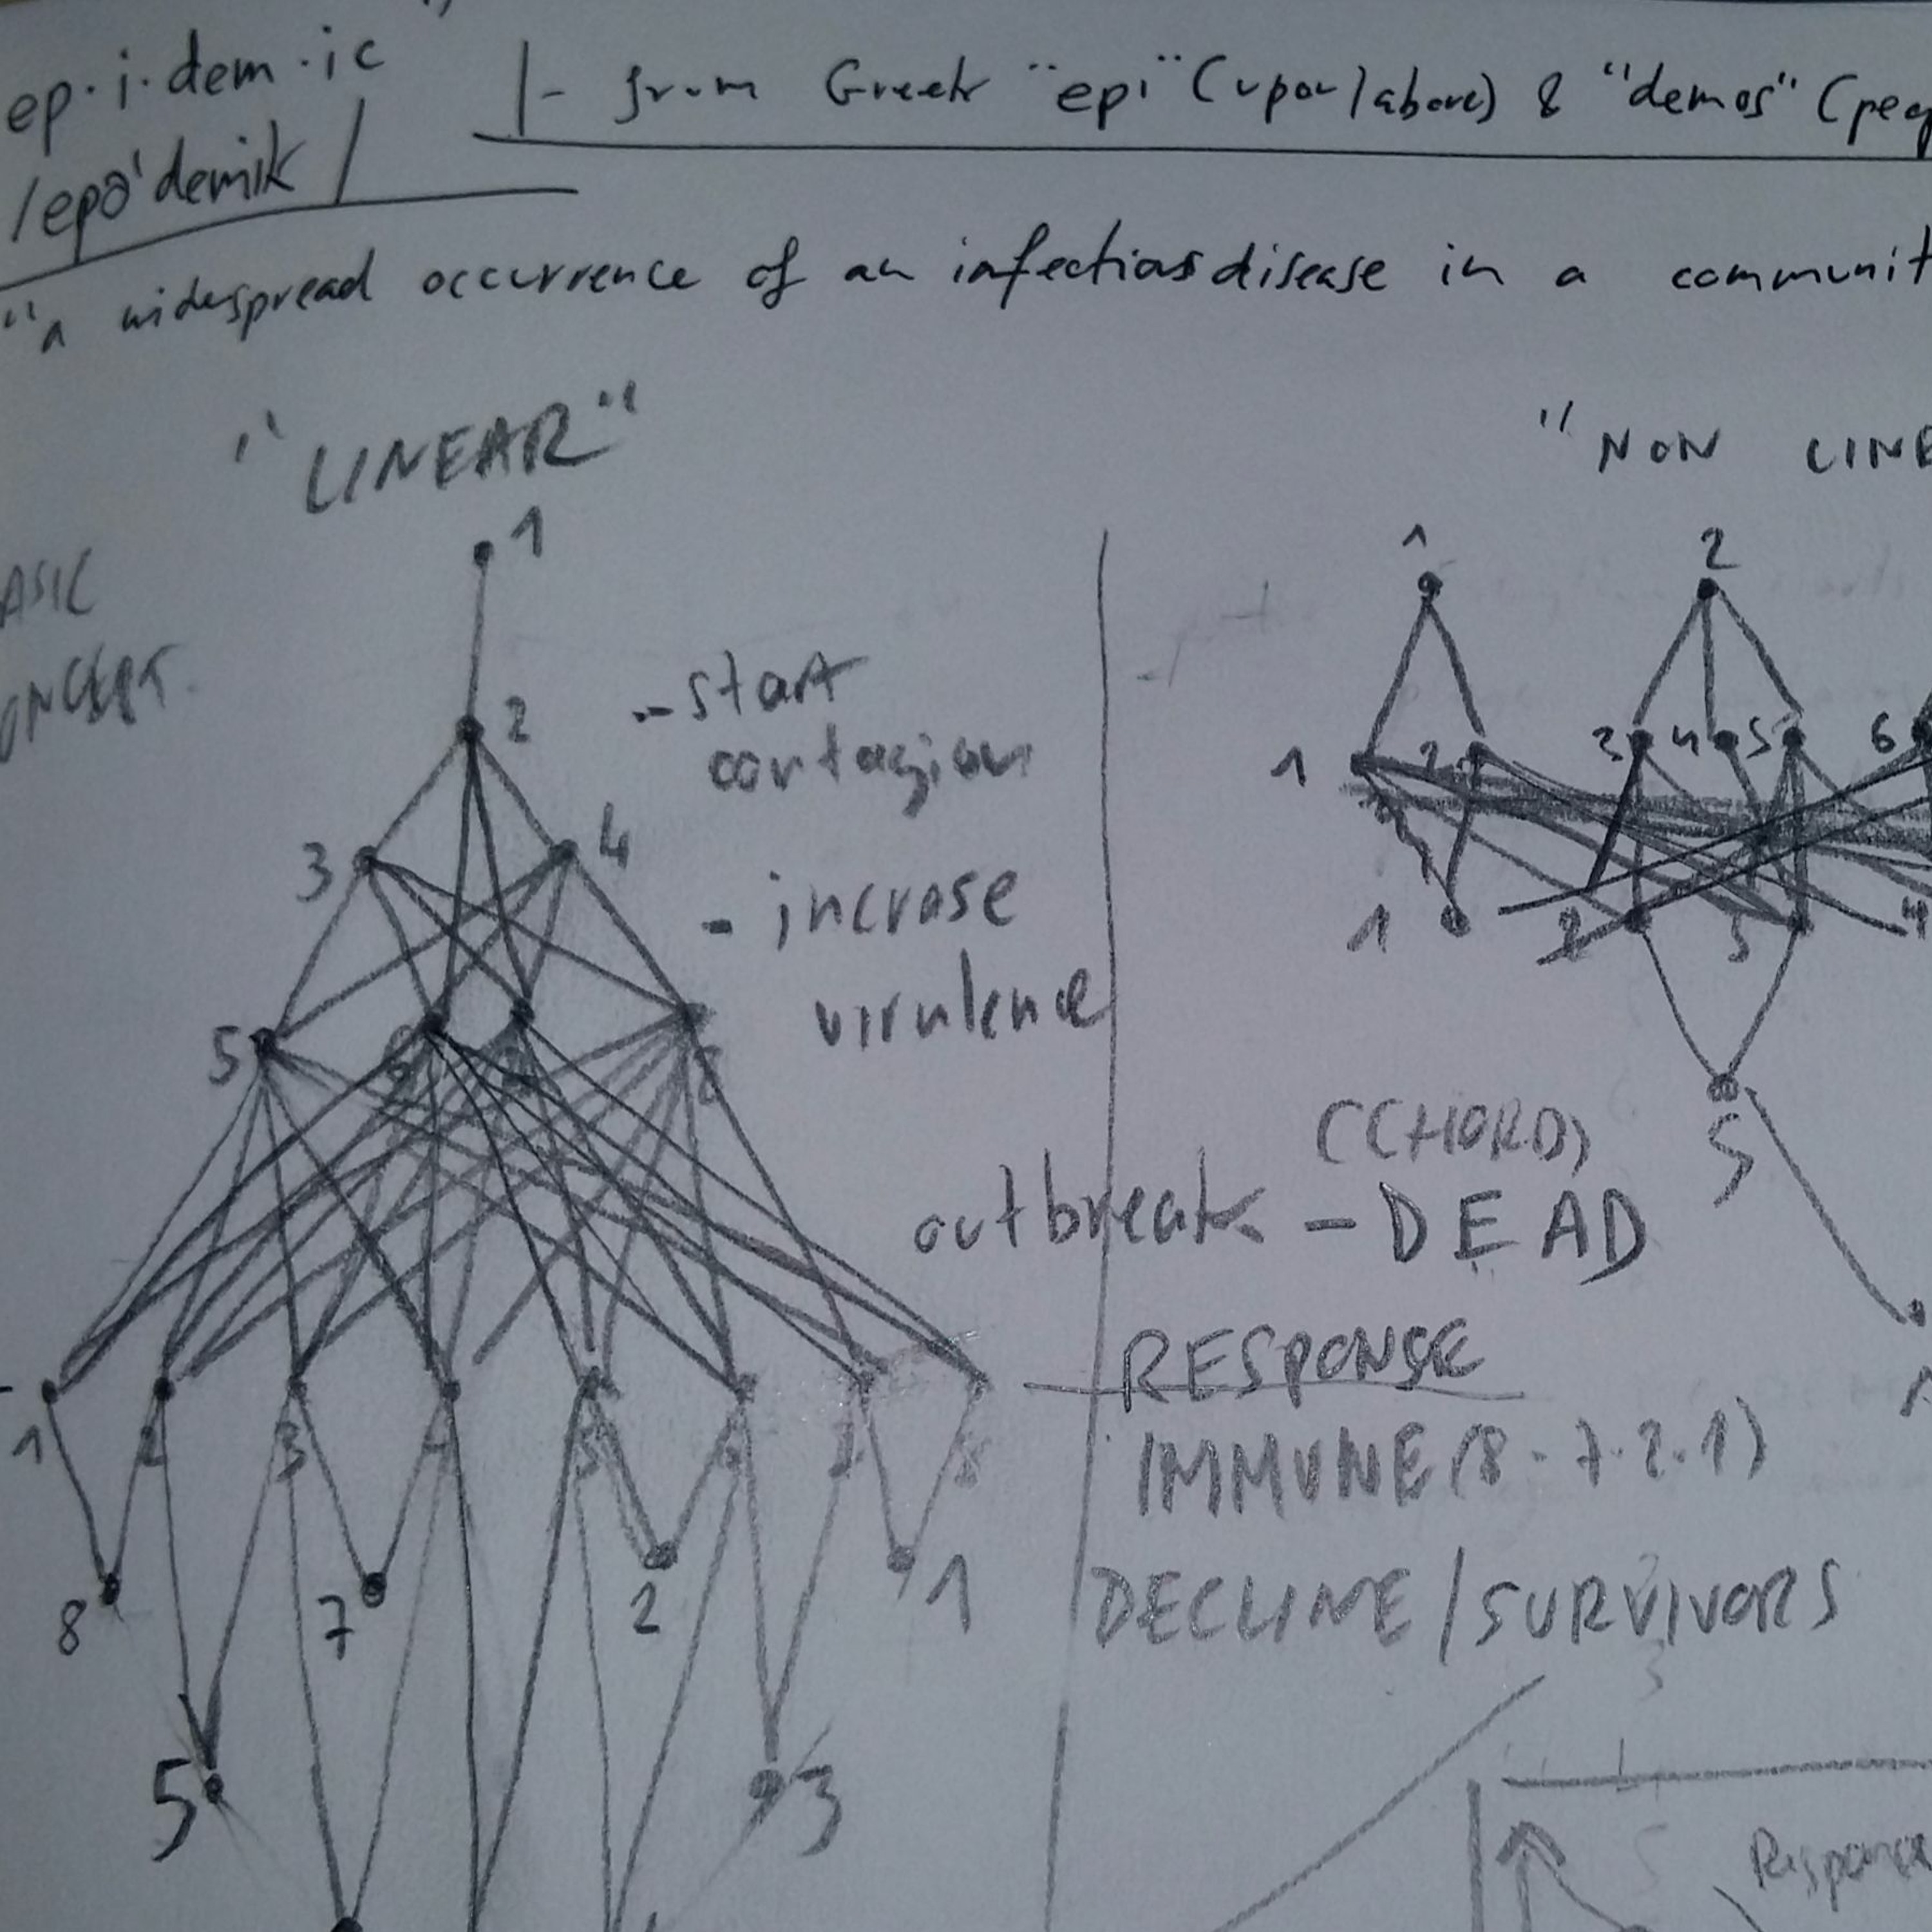 ep·i·dem·ic
/epə'demik/
- from Greek "epi" (upon/above) & "demos" (peop
"a widespread occurrence of an infectious disease in a communit
"LINEAR"
"NON LINE
ASIC
ONCEPT.
1
2
- start
contagion
3 4
- incrase
virulence
5
1 2
1 2 3 4 5 6
1 2 3 4
5
(CHORD)
outbreak - DEAD
RESPONSE
IMMUNE (8-7.2.1)
DECLINE/SURVIVORS
1 2 3 4 5 6 7 8
8 7 2 1
5 3
Response